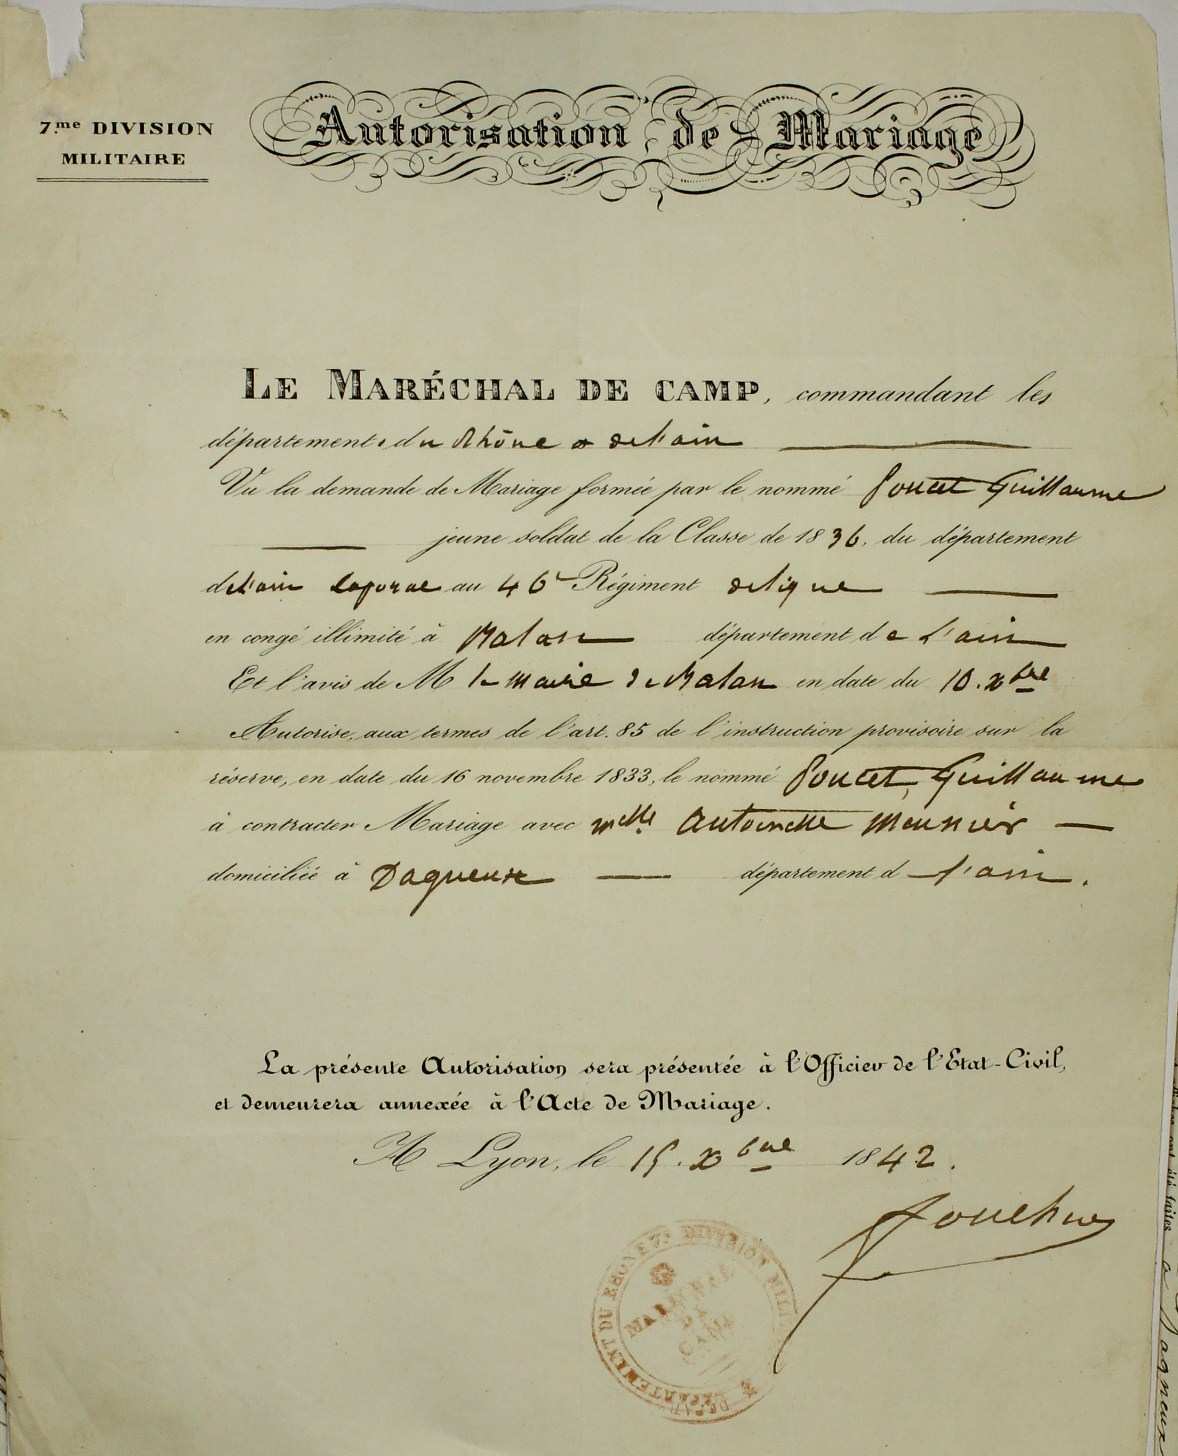 7.me DIVISION
MILITAIRE
Autorisation de Mariage
LE MARÉCHAL DE CAMP, commandant les
départements du Rhône & de l'ain
Vu la demande de Mariage formée par le nommé Poncet Guillaume
jeune soldat de la Classe de 1836, du département
de l'ain Caporal au 46e Régiment de ligne
en congé illimité à Balan département de L'ain
Et l'avis de M le maire de Balan en date du 10. Xbre
Autorise, aux termes de l'art. 85 de l'instruction provisoire sur la
réserve, en date du 16 novembre 1833, le nommé Poncet, Guillaume
à contracter Mariage avec Melle Antoinette Meunier
domiciliée à Dagneux département d l'ain.
La présente Autorisation sera présentée à l'Officier de l'Etat-Civil,
et demeurera annexée à l'Acte de Mariage.
A Lyon, le 15. Xbre 1842.
DEPARTEMENT DU RHONE 7e DIVISION
DE
CAMP
été faites
à Dagneux